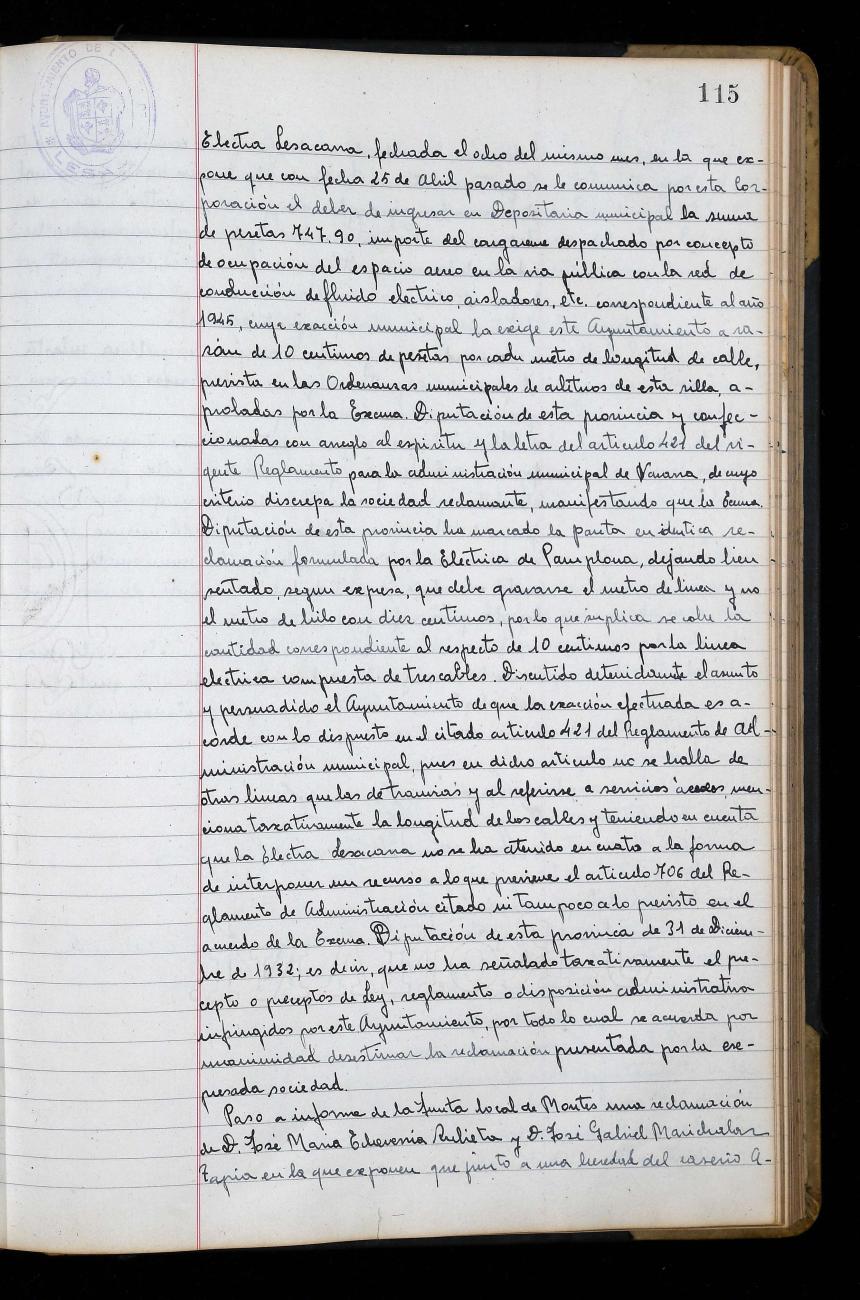 115
AYUNTAMIENTO DE
LESA
Electra Lesacana, fechada el ocho del mismo mes, en la que ex-
pone que con fecha 25 de Abril pasado se le comunica por esta Cor-
poración el deber de ingresar en Depositaria municipal la suma
de pesetas 747.90, importe del cargareme despachado por concepto
de ocupación del espacio aereo en la via pública con la red de
conducción de fluido electrico, aisladores, etc. correspondiente al año
1945, cuya exacción municipal la exige este Ayuntamiento a ra-
zón de 10 centimos de pesetas por cada metro de longitud de calle,
prevista en las Ordenanzas municipales de arbitrios de esta villa, a-
probadas por la Excma. Diputación de esta provincia y confec-
cionadas con arreglo al espiritu y la letra del articulo 421 del vi-
gente Reglamento para la administración municipal de Navarra, de cuyo
criterio discrepa la sociedad reclamante, manifestando que la Excma.
Diputación de esta provincia ha marcado la pauta en identica re-
clamación formulada por la Eléctrica de Pamplona, dejando bien
sentado, segun expresa, que debe gravarse el metro de linea y no
el metro de hilo con diez centimos, por lo que suplica se cobre la
cantidad correspondiente al respecto de 10 centimos por la linea
electrica compuesta de tres cables. Discutido detenidamente el asunto
y persuadido el Ayuntamiento de que la exacción efectuada es a-
corde con lo dispuesto en el citado articulo 421 del Reglamento de Ad-
ministración municipal, pues en dicho articulo no se halla de
otras lineas que las de tranvias y al referirse a servicios aereos men-
ciona taxativamente la longitud de los cables y teniendo en cuenta
que la Electra Lesacana no se ha atenido en cuato a la forma
de interponer un recurso a lo que previene el articulo 706 del Re-
glamento de Administración citado ni tampoco a lo previsto en el
acuerdo de la Excma. Diputación de esta provincia de 31 de Diciem-
bre de 1932; es decir, que no ha señalado taxativamente el pre-
cepto o preceptos de Ley, reglamento o disposición administrativa
infringidos por este Ayuntamiento, por todo lo cual se acuerda por
unanimidad desestimar la reclamación presentada por la ex-
presada sociedad.
Paso a informe de la Junta local de Montes una reclamación
de D. José Maria Echeverria Zubieta y D. José Gabriel Marichalar
Tapia en la que exponen que junto a una heredad del caserio A-